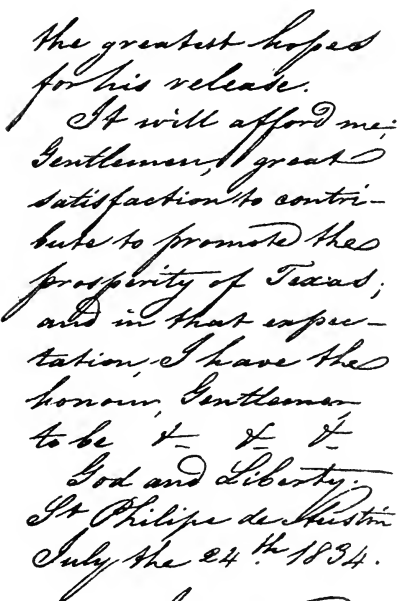 the greatest hopes
for his release.
It will afford me,
Gentlemen, great
satisfaction to contri-
bute to promote the
prosperity of Texas;
and in that expec-
tation, I have the
honour, Gentlemen,
to be &- &- &-
God and Liberty.
St Philipe de Austin
July the 24th 1834.